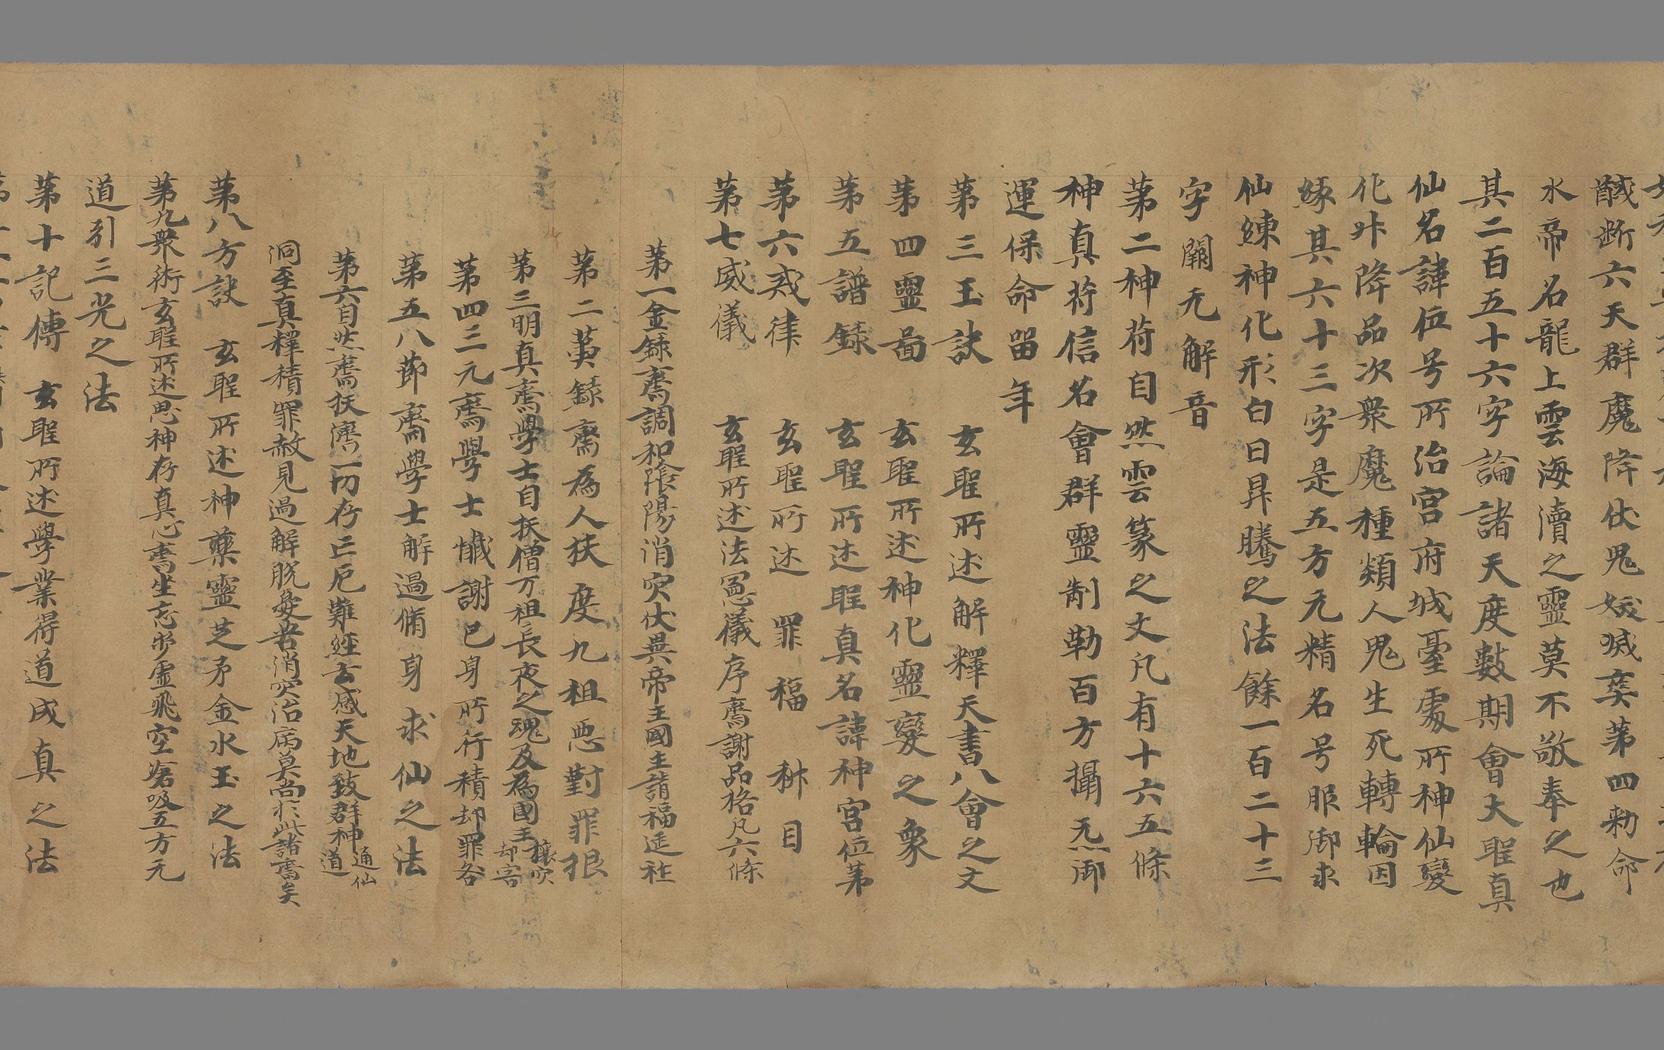 馘断六天群魔降伏鬼妖滅𡙇第四勑命
水帝名龍上雲海瀆之靈莫不敬奉之也
其二百五十六字論諸天度數期會大聖真
仙名諱位号所治宮府城臺處所神仙變
化升降品次衆魔種類人鬼生死轉輪因
緣其六十三字是五方元精名号服御求
仙練神化形白日昇騰之法餘一百二十三
字闕无解音
第二神符自然雲篆之文凡有十六五條
神真符信名會群靈制勒百方攝炁御
運保命留年
第三玉訣 玄聖所述解釋天書八會之文
第四靈啚 玄聖所述神化靈變之象
第五譜録 玄聖所述聖真名諱神宮位第
第六戒律 玄聖所述 罪福科目
第七威儀 玄聖所述法憲儀序齋謝品格凡六條
第一金録齋調和陰陽消灾伏異帝王國主請福延祚
第二黄録齋為人拔度九祖惡對罪根
第三明真齋學士自拔僧万祖長夜之魂及為國主 攘灾却害
第四三元齋學士懴謝已身所行積却罪咎
第五八節齋學士解過脩身求仙之法
第六自然齋拔濟一切存亡厄難經云感天地致群神 通仙道
洞至真釋積罪赦見過解脱憂苦消灾治病莫尚於此諸齋矣
第八方訣 玄聖所述神藥靈芝矛金水玉之法
第九衆術玄聖所述思神存真心齋坐忘步虚飛空湌吸五方元
道引三光之法
第十記傳 玄聖所述學業得道成真之法